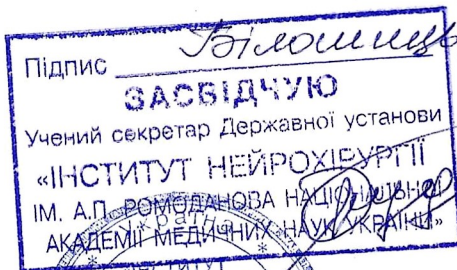 Підпис
ЗАСВІДЧУЮ
Учений секретар Державної установи
«ІНСТИТУТ НЕЙРОХІРУРГІЇ
ІМ. А.П. РОМОДАНОВА НАЦІОНАЛЬНОЇ
АКАДЕМІЇ МЕДИЧНИХ НАУК УКРАЇНИ»
ІНСТИТУТ